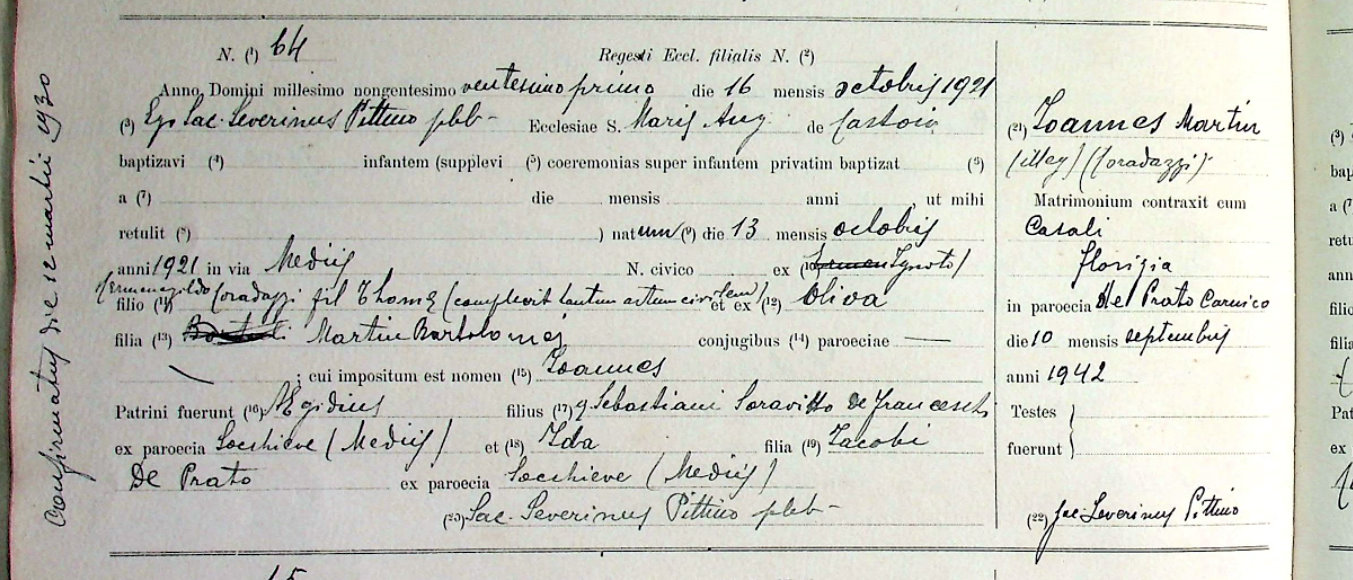 N. (¹) 64 Regesti Eccl. filialis N. (²)
Anno Domini millesimo nongentesimo ventesimo primo die 16 mensis octobris 1921
(³) Ego Sac. Severinus Pittino pbb- Ecclesiae S. Mariæ Ang de Castoia
baptizavi (⁴) infantem (supplevi (⁵) coeremonias super infantem privatim baptizat (⁶)
a (⁷) die mensis anni , ut mihi
retulit (⁸) ) natum (⁹) die 13 mensis octobris
anni 1921 in via Mediis N. civico ex (¹⁰) Ignoto /
/ Ermenegildo
filio (¹¹) Coradazzi fil Thomæ (complevit tantum actum civilem) et ex (¹²) Oliva
filia (¹³) Martin Bartolomej conjugibus (¹⁴) paroeciae —
; cui impositum est nomen (¹⁵) Ioannes
Patrini fuerunt (¹⁶) Ægidius filius (¹⁷) q Sebastiani Soravitto de Franceschi
ex paroecia Socchieve (Mediis) et (¹⁸) Ida filia (¹⁹) Iacobi
De Prato ex paroecia Socchieve (Mediis)
(²⁰) Sac. Severinus Pittino pbb-
(²¹) Ioannes Martin
(illeg) (Coradazzi)
Matrimonium contraxit cum
Casali
Florizia
in paroecia del Prato Carnico
die 10 mensis septembris
anni 1942
Testes
fuerunt
(²²) Sac. Severinus Pittino
Confirmatus die 12 martii 1930
(³)
bap
a (⁷
retu
ann
filio
filia
Pat
ex
15